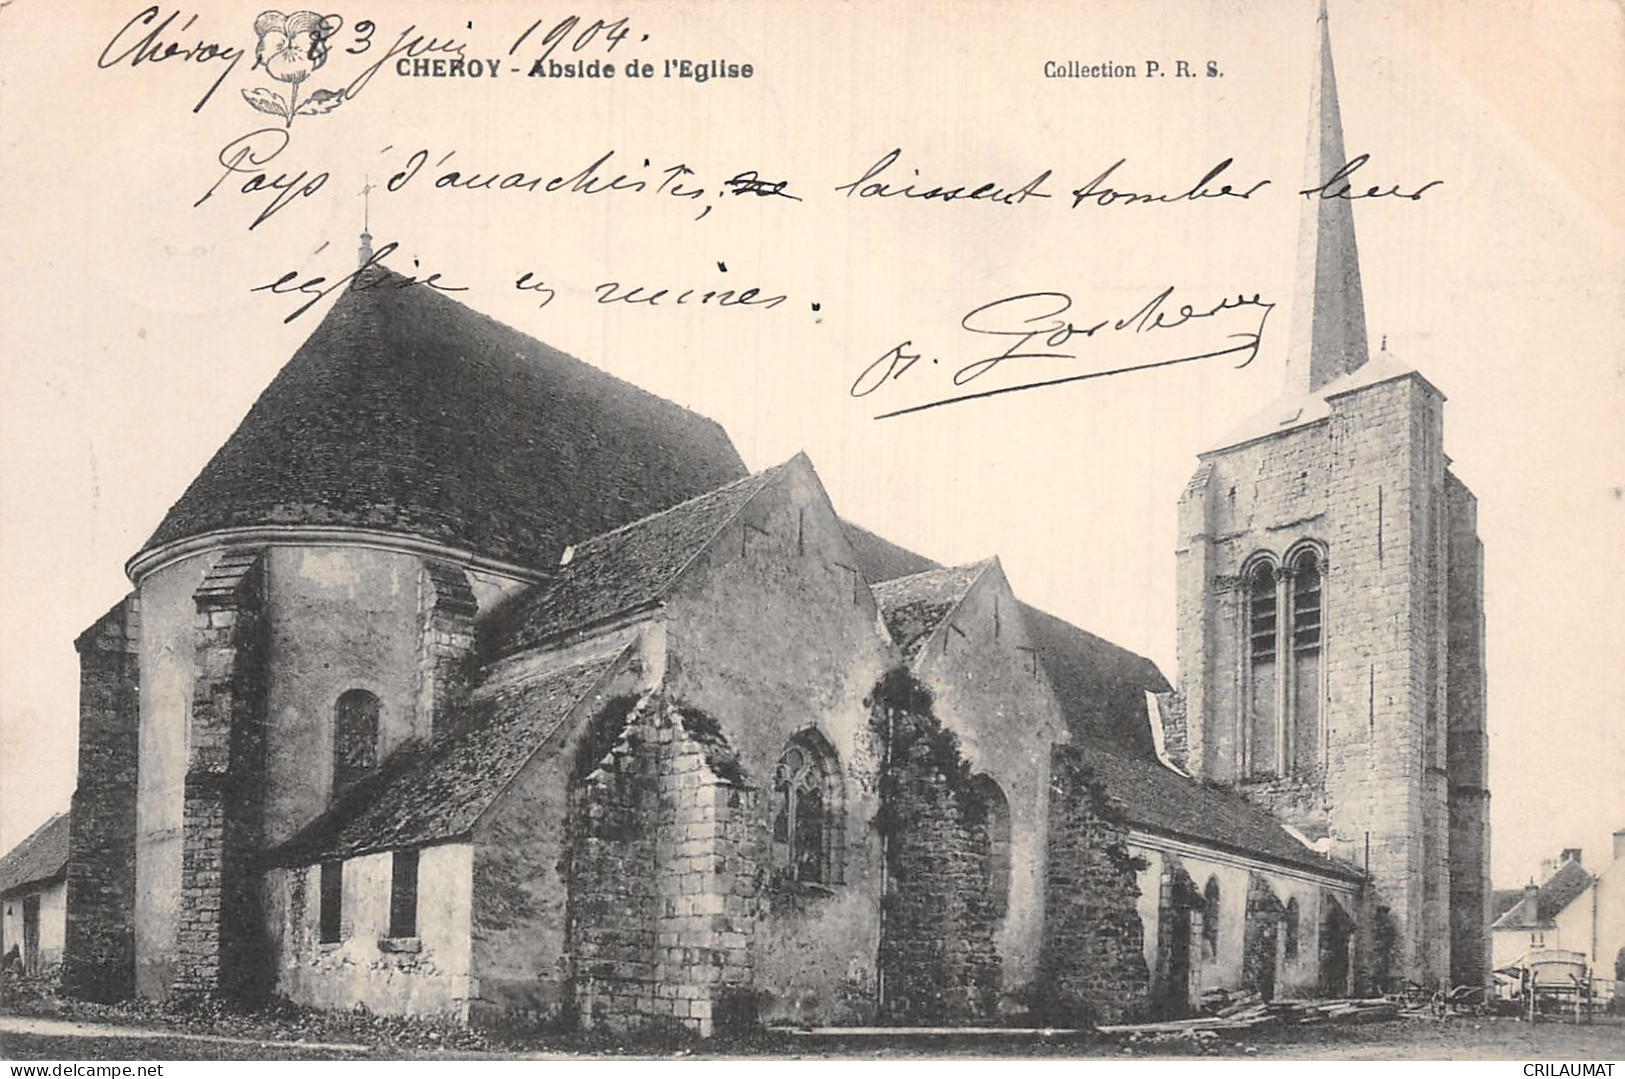 Chéroy, 23 juin 1904.
CHEROY - Abside de l'Eglise
Collection P. R. S.
Pays d'anarchistes, laissent tomber leur
église en ruines.
delcampe.net
CRILAUMAT